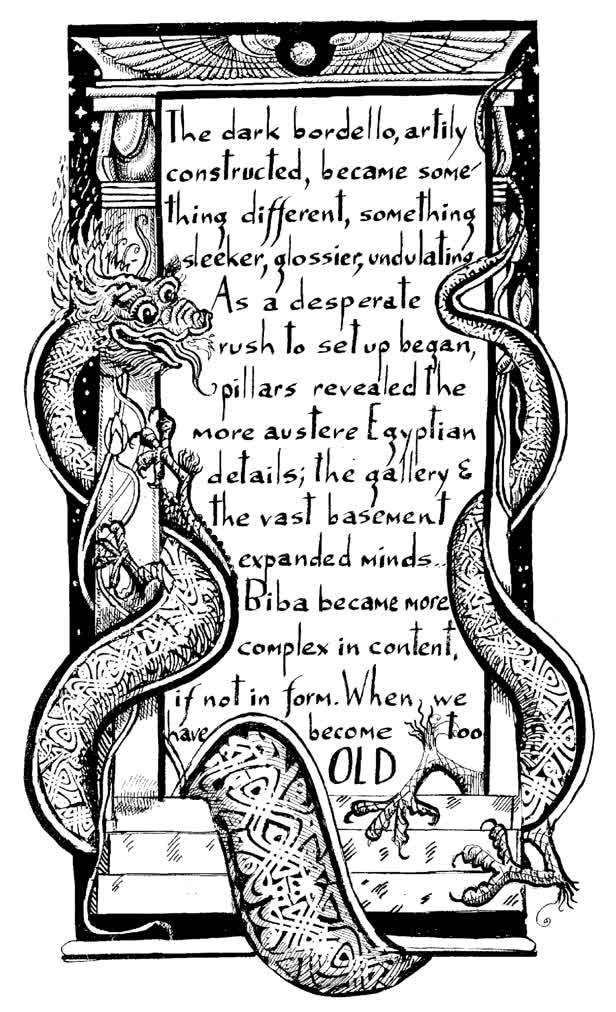 The dark bordello, artily
constructed, became some-
thing different, something
sleeker, glossier, undulating.
As a desperate
rush to set up began,
pillars revealed the
more austere Egyptian
details; the gallery &
the vast basement
expanded minds...
Biba became more
complex in content,
if not in form. When we
have become too
OLD